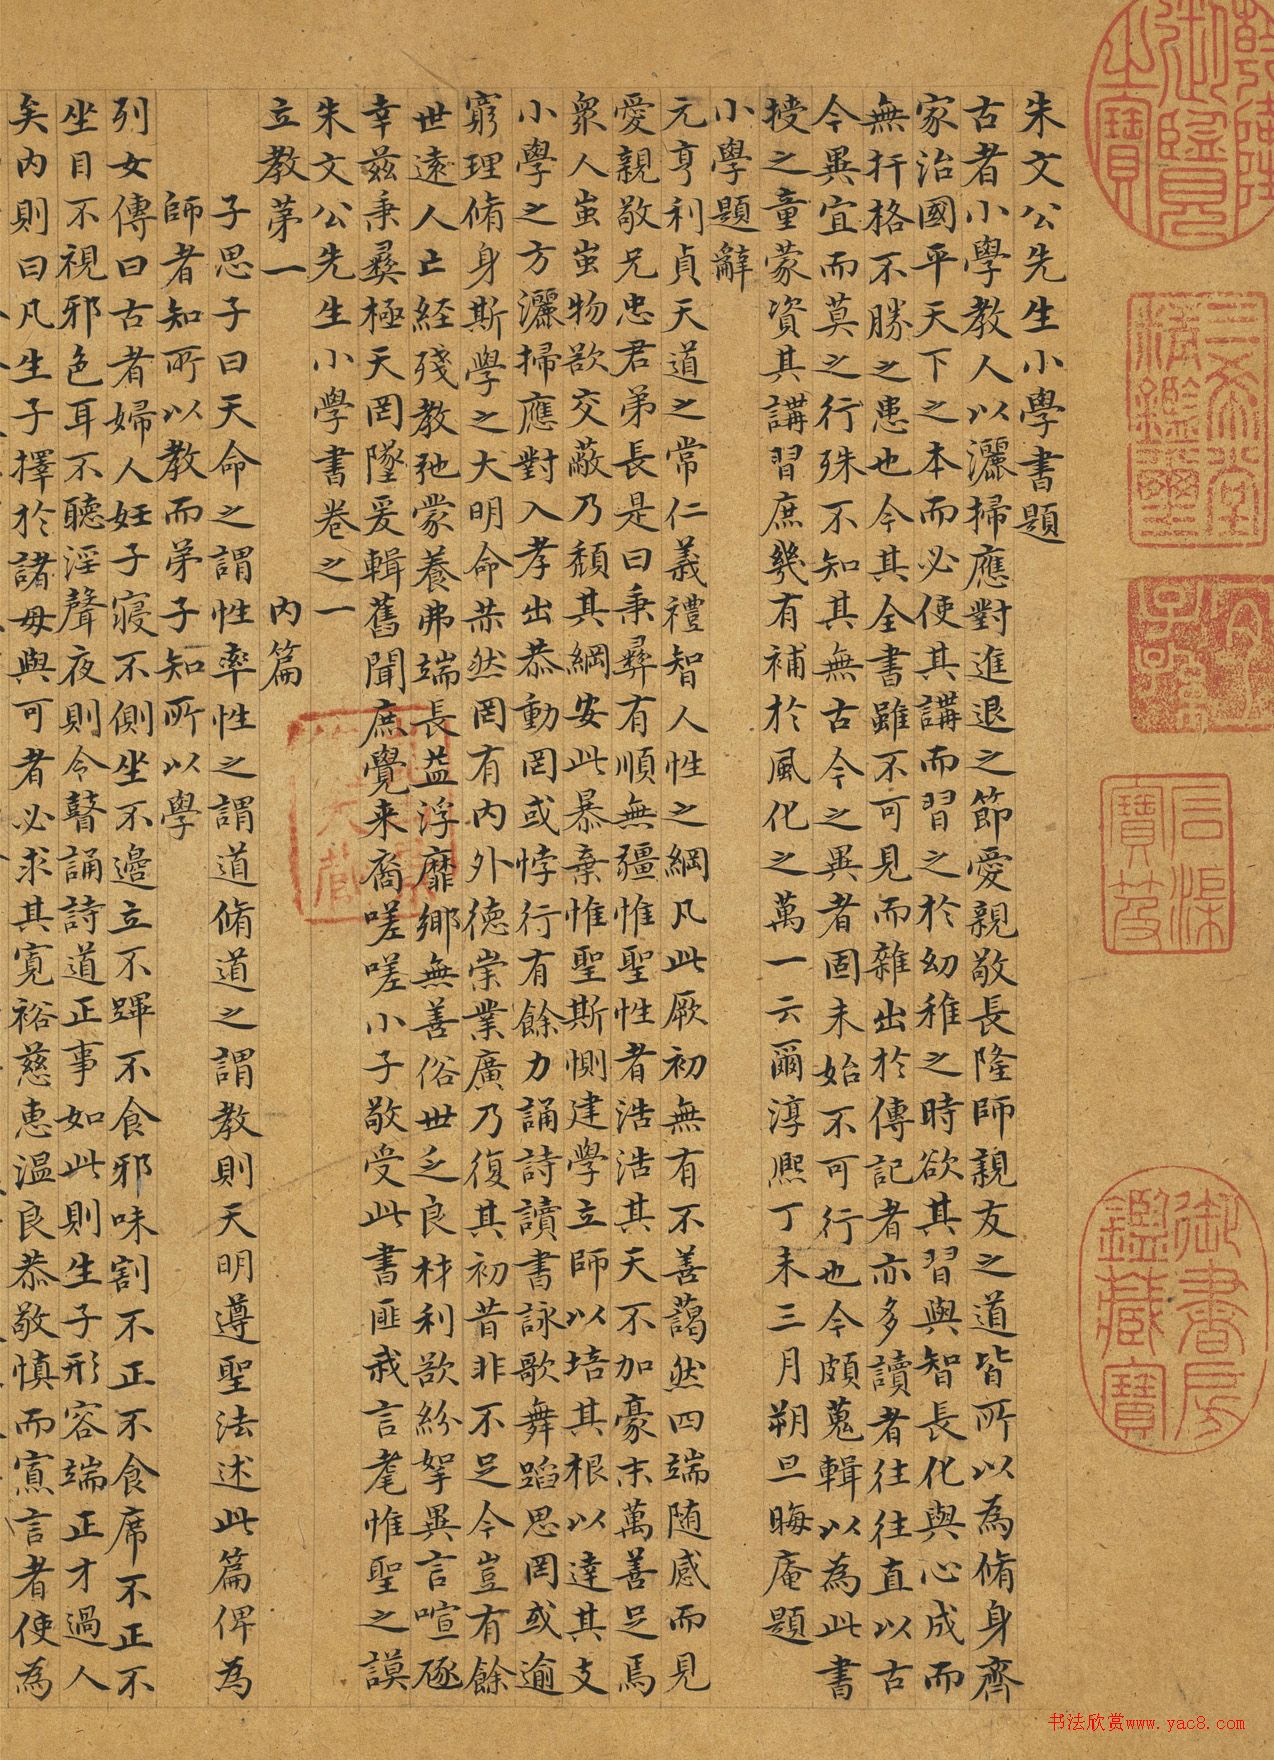 乾隆御覽之寶
三希堂精鑑璽
宜子孫
石渠寶笈
御書房鑑藏寶
朱文公先生小學書題
古者小學教人以灑掃應對進退之節愛親敬長隆師親友之道皆所以為脩身齊
家治國平天下之本而必使其講而習之於幼稚之時欲其習與智長化與心成而
無扞格不勝之患也今其全書雖不可見而雜出於傳記者亦多讀者往往直以古
今異宜而莫之行殊不知其無古今之異者固未始不可行也今頗蒐輯以為此書
授之童蒙資其講習庶幾有補於風化之萬一云爾淳熈丁未三月朔旦晦庵題
小學題辭
元亨利貞天道之常仁義禮智人性之綱凡此厥初無有不善藹然四端随感而見
愛親敬兄忠君弟長是曰秉彝有順無疆惟聖性者浩浩其天不加豪末萬善足焉
衆人蚩蚩物欲交蔽乃頹其綱安此暴棄惟聖斯惻建學立師以培其根以達其支
小學之方灑掃應對入孝出恭動罔或悖行有餘力誦詩讀書詠歌舞蹈思罔或逾
窮理脩身斯學之大明命赫然罔有內外德崇業廣乃復其初昔非不足今豈有餘
世遠人亡經殘教弛蒙養弗端長益浮靡鄉無善俗世乏良材利欲紛挐異言喧豗
幸茲秉彝極天罔墜爰輯舊聞庶覺来裔嗟嗟小子敬受此書匪我言耄惟聖之謨
朱文公先生小學書卷之一
立教第一 內篇
子思子曰天命之謂性率性之謂道脩道之謂教則天明遵聖法述此篇俾為
師者知所以教而弟子知所以學
列女傳曰古者婦人妊子寢不側坐不邊立不蹕不食邪味割不正不食席不正不
坐目不視邪色耳不聽淫聲夜則令瞽誦詩道正事如此則生子形容端正才過人
矣內則曰凡生子擇於諸母與可者必求其寬裕慈惠溫良恭敬慎而寡言者使為
书法欣赏www.yac8.com